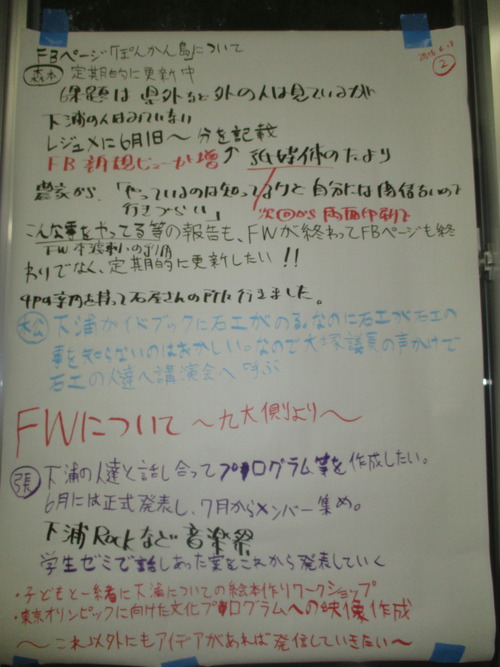 2015.6.13
②
FBページ「ぽんかん島」について
森本 定期的に更新中
6課題は 県外など外の人は見ているが
下浦の人はみていない
レジュメに6月1日〜 分を記載
FB 新規ビューが増↑ 紙媒体のたより
農家から、「やっているのは知ってるけど 自分には関係ないので
行きづらい」 次回から両面印刷で
こんな事をやってる等の報告も、FWが終わってFBページも終
わりでなく、定期的に更新したい!!
持って石屋さんの所に行きました。
松 下浦ガイドブックに石工がのる。なのに石工が石工の
事を知らないのはおかしい。なので大塚議員の声かけで
石工の人達へ講演会へ呼ぶ
FWについて 〜九大側より〜
張 下浦の人達と話し合ってプログラム等を作成したい。
6月には正式発表し、7月からメンバー集め。
下浦Rockなど音楽祭
学生ゼミで話しあった案をこれから発表していく
・子どもと一緒に下浦についての絵本作りワークショップ
・東京オリンピックに向けた文化プログラムへの映像作成
〜これ以外にもアイデアがあれば発信していきたい〜